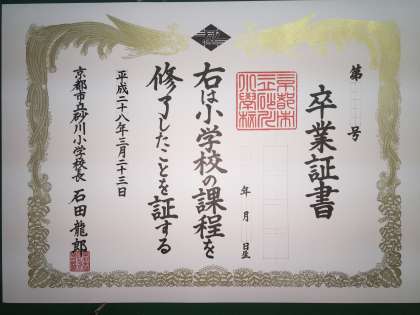 卒業証書
第 号
年 月 日生
右は小学校の課程を
修了したことを証する
平成二十八年三月二十三日
京都市立砂川小学校長 石田龍郎